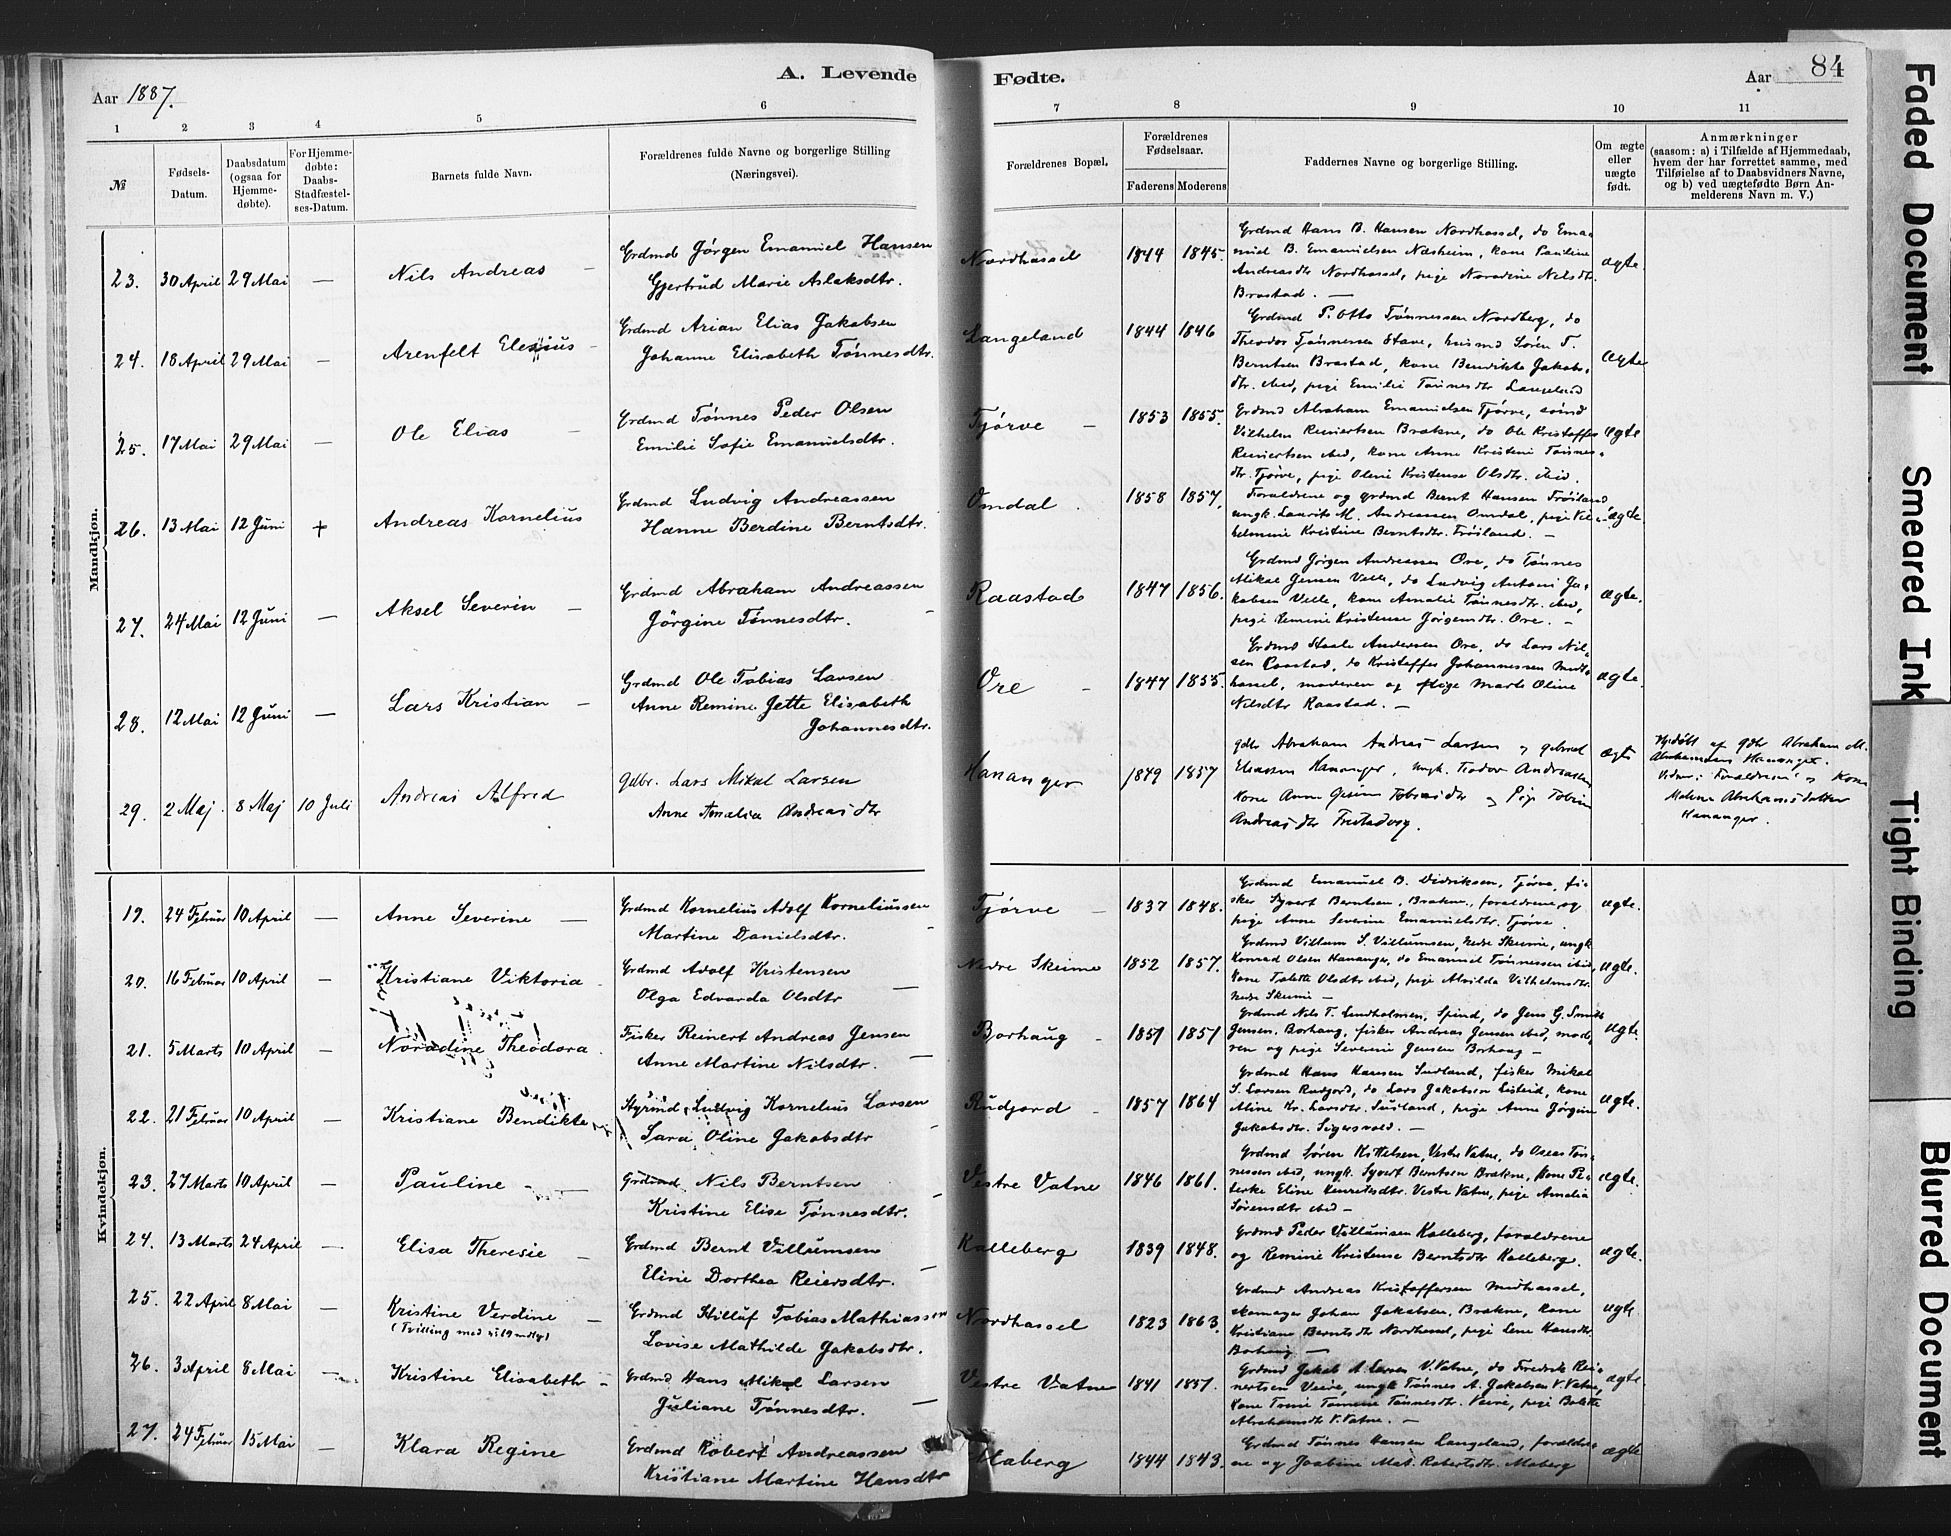 A. Levende
Aar 1887.
1 2 3 4 5 6
№
Fødsels-
Datum.
Daabsdatum
(ogsaa for
Hjemme-
døbte).
For Hjemme-
døbte:
Daabs-
Stadfæstel-
ses-Datum.
Barnets fulde Navn.
Forældrenes fulde Navne og borgerlige Stilling
(Næringsvei).
Mandkjøn.
23. 30 April 29 Mai — Nils Andreas —
Grdmd Jørgen Emanuel Hansen
Gjertrud Marie Aslaksdtr.
24. 18 April 29 Mai — Arenfelt Elesius —
Grdmd Arian Elias Jakobsen
Johanne Elisabeth Tønnesdtr.
25. 17 Mai 29 Mai — Ole Elias —
Grdmd Tønnes Peder Olsen
Emilie Sofie Emanuelsdtr.
26. 13 Mai 12 Juni + Andreas Kornelius
Grdmd Ludvig Andreassen
Hanne Berdine Berntsdtr.
27. 24 Mai 12 Juni — Aksel Severin —
Grdmd Abraham Andreassen
Jørgine Tønnesdtr.
28. 12 Mai 12 Juni — Lars Kristian —
Grdmd Ole Tobias Larsen
Anne Remine Jette Elisabeth
Johannesdtr.
29. 2 Maj. 8 Maj 10 Juli Andreas Alfred
Gdbr. Lars Mikal Larsen
Anne Amalia Andreasdtr
Kvindekjøn.
19. 24 Februar 10 April — Anne Severine —
Grdmd Kornelius Adolf Korneliussen
Martine Danielsdtr.
20. 16 Februar 10 April — Kristiane Viktoria
Grdmd Adolf Kristensen
Olga Edvarda Olsdtr —
21. 5 Marts 10 April — Noradine Theodora.
Fisker Reinert Andreas Jensen
Anne Martine Nilsdtr. —
22. 21 Februar 10 April — Kristiane Bendikte
Styrmd Ludvig Kornelius Larsen
Sara Oline Jakobsdtr
23. 27 Marts 10 April — Pauline —
Grdmd Nils Berntsen
Kristine Elise Tønnesdtr.
24. 13 Marts 24 April — Elisa Theresie —
Grdmd Bernt Villumsen
Eline Dorthea Reiersdtr. —
25. 22 April 8 Mai — Kristine Verdine —
(Tvilling med
Grdmd Hilluf Tobias Mathiassen
Lovise Mathilde Jakobsdtr.
26. 3 April 8 Mai — Kristine Elisabeth —
Grdmd Hans Mikal Larsen
Juliane Tønnesdtr. —
27. 24 Februar 15 Mai — Klara Regine
Grdmd Robert Andreassen
Kristiane Martine Hansdtr
Fødte.
Aar 84
7 8 9 10 11
Forældrenes Bopæl.
Forældrenes
Fødselsaar.
Faderens Moderens
Faddernes Navne og borgerlige Stilling.
Om ægte
eller
uægte
født.
Anmærkninger
(saasom: a) i Tilfælde af Hjemmedaab,
hvem der har forrettet samme, med
Tilføielse af to Daabsvidners Navne,
og b) ved uægtefødte Børn An-
melderens Navn m. V.)
Nordhassel 1844 1845.
Grdmd Hans B. Hansen Nordhassel, do Ema-
nuel B. Emanuelsen Næsheim, kone Pauline
Andreasdtr Nordhassel, pige Noradine Nilsdtr.
Brastad. —
ægte.
Langeland 1844 1846
Grdmd P. Otto Tønnessen Nordberg, do
Theodor Tønnessen Stave, husmd Søren T.
Berntsen Brastad, kone Bendikte Jakobs-
dtr. ibid, pige Emilie Tønnesdtr Langeland
ægte
Tjørve — 1853 1855.
Grdmd Abraham Emanuelsen Tjørve,
Vilhelm Reinertsen Brækne, do Ole Kristoffer
Reinertsen ibid, kone Anne Kristine Tønnes-
dtr. Tjørve, pige Oline Kristense Olsdtr. ibid.
ægte
Omdal. 1858 1857.
Forældrene og grdmd Bernt Hansen Frøiland,
ungk. Laurits M. Andreassen Omdal, pige Vil-
helmine Kristine Berntsdtr. Frøiland. —
ægte.
Raastad 1847 1856.
Grdmd Jørgen Andreassen Ore, do Tønnes
Mikal Jensen Velle, do Ludvig Antoni Ja-
kobsen Velle, kone Amalie Tønnesdtr. ibid,
pige Remine Kristense Jørgensdtr. Ore. —
ægte.
Ore — 1847 1855.
Grdmd Staale Andersen Ore, do Lars Nil-
sen Raastad, do Kristoffer Johannessen Midt-
hassel, moderen og pige Marte Oline
Nilsdtr Raastad. —
ægte.
Hananger 1849 1857
gdbr Abraham Andreas Larsen og Gabriel
Eliassen Hananger, ungk. Teodor Andreassen
Kone Anne Gesine Tobiasdtr og Pige Tobine
Andreasdtr
ægte
Hjdøbt af gdbr Abraham M.
Abrahamsen Hananger.
Vidner: Forældrene og Kone
Malene Abrahamsdatter
Hananger.
Tjørve — 1837 1848.
Grdmd Emanuel B. Didriksen, Tjørve, fi-
sker Syvert Berntsen, Brækne, forældrene og
pige Anne Severine Emanuelsdtr. Tjørve.
ægte.
Nedre Skeime 1852 1857.
Grdmd Villum S. Villumsen, Nedre Skeime, ungk
Konrad Olsen Hananger, do Emanuel Tønnessen ibid,
Kone Tolette Olsdtr ibid, pige Alvilda Vilhelmsdtr.
Nedre Skeime —
ægte.
Borhaug — 1851 1851
Grdmd Nils T. Lundholmen, Spind, do Jens G. Smith
Jensen, Borhaug, fisker Andreas Jensen ibid, mode-
ren og pige Severine Jensen Borhaug —
ægte.
Rudjord — 1857 1864
Grdmd Hans Hansen Sudland, fisker Mikal
S. Larsen Rudjord, do Lars Jakobsen Listeid, kone
Aline Kr. Larsdtr. Sudland, pige Anne Jørgine
Jakobsdtr. Sigersvold. —
ægte.
Vestre Vatne 1846 1861.
Grdmd Søren Kittelsen, Vestre Vatne, do Oseas Tøn-
nessen ibid, ungk. Syvert Berntsen Brækne, kone Pe-
Eline Vestre Vatne, pige Amalia
Sørensdtr ibid —
ægte.
Kalleberg 1839 1848.
Grdmd Peder Villumsen Kalleberg, forældrene
og Remine Kristense Berntsdtr Kalleberg.
ægte.
Nordhassel 1823 1863.
Grdmd Andreas Kristoffersen Midthassel,
skomager Johan Jakobsen, Brækne, kone
Kristiane Berntsdtr Nordhassel, pige Lene Hansdtr.
Borhaug —
ægte.
Vestre Vatne 1841 1851.
Grdmd Jakob A. Larsen V. Vatne, do Fredrik Rei-
nertsen Veive, ungk Tønnes A. Jakobsen V. Vatne,
Kone Tomine Tønnesdtr. Veive, pige Bolette
Abrahamsdtr V. Vatne. —
ægte.
Maberg 1844 1843.
Grdmd Tønnes Hansen Langeland, forældre-
ne og Mat. Robertsdtr. Maberg
ægte
Faded Document
Smeared Ink
Tight Binding
Blurred Document